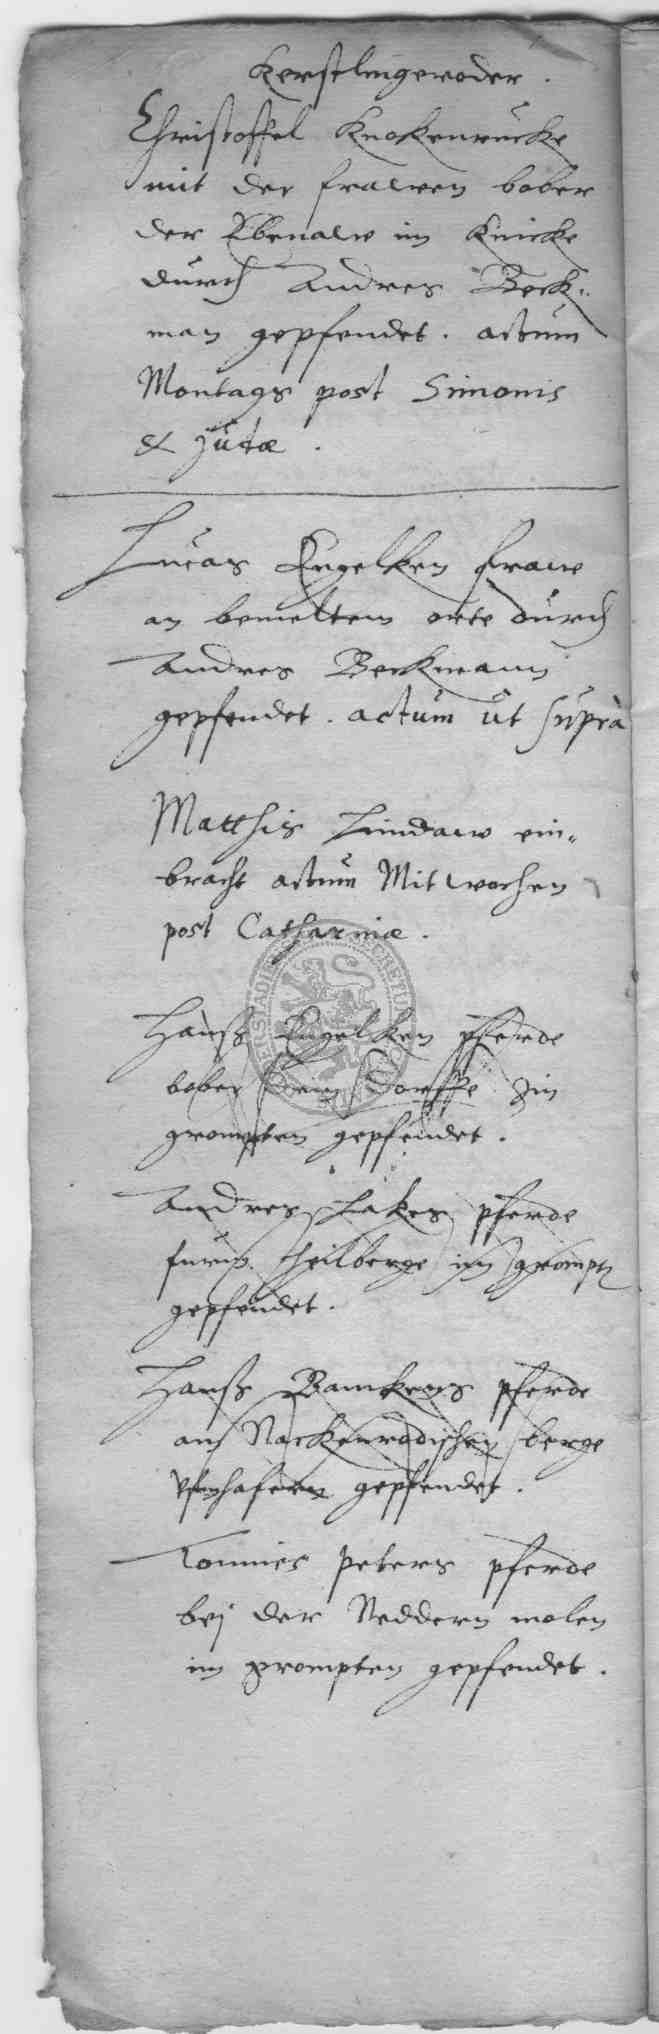 Kerstlingeroder.
Christoffel Knokenrucke
mit der frawen bober
der Ebenaw im Knicke
durch Andres Beck-
man gepfendet. actum
Montags post Simonis
& Judæ.
Lucas Engelken fraw
an bemeltem orte durch
Andres Beckmann
gepfendet. actum ut suprà
Matthis Lindaw ein-
bracht actum Mitwochen
post Catharinæ.
Hanß Engelken pferde
bober dorffe im
grompten gepfendet.
Andres Lakes pferde
furm heilberge im grompt
gepfendet.
Hanß Bamkens pferde
am Nackenrodischen berge
gepfendet.
Tonnies Peters pferde
bej der Neddern molen
im grompten gepfendet.